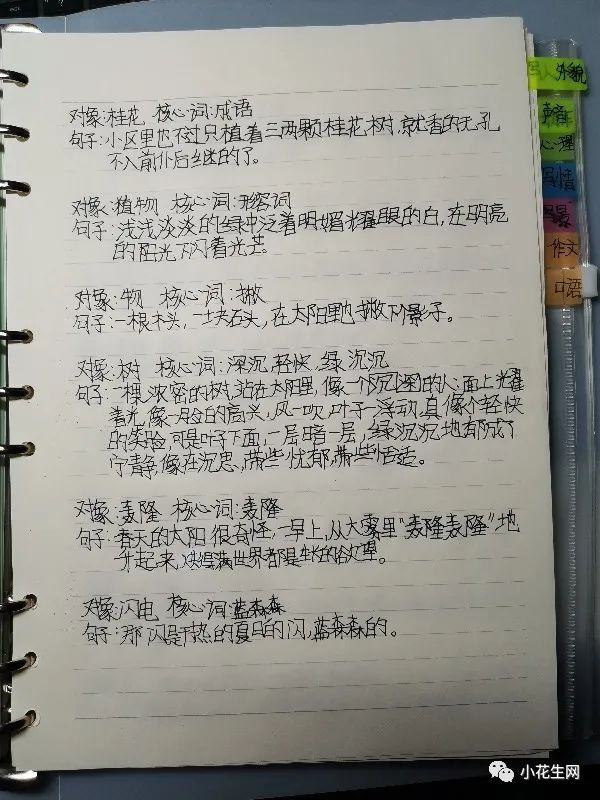 对象:桂花 核心词:成语
句子:小区里也不过只植着三两颗桂花树,就香的无孔
不入前仆后继的了。
对象:植物 核心词:形容词
句子:浅浅淡淡的绿中泛着明媚耀眼的白,在明亮
的阳光下闪着光芒。
对象:物 核心词:撇
句子:一根木头,一块石头,在太阳里也撇下个影子。
对象:树 核心词:深沉,轻快,绿沉沉
句子:一棵浓密的树,站在太阳里,像一个深沉的人:面上耀
着光,像一脸的高兴,风一吹,叶子一浮动,真像个轻快
的笑脸,可是叶子下面,一层暗一层,绿沉沉地郁成了
宁静,像在沉思,带些忧郁,带些恬适。
对象:轰隆 核心词:轰隆
句子:春天的太阳很奇怪,一早上,从大雾里"轰隆轰隆"地
升起来,满世界都是生长的欲望。
对象:闪电 核心词:蓝森森
句子:那闪是干热的夏日的闪,蓝森森的。
写人外貌
声音
心理
写情
写景
作文
口语
小花生网